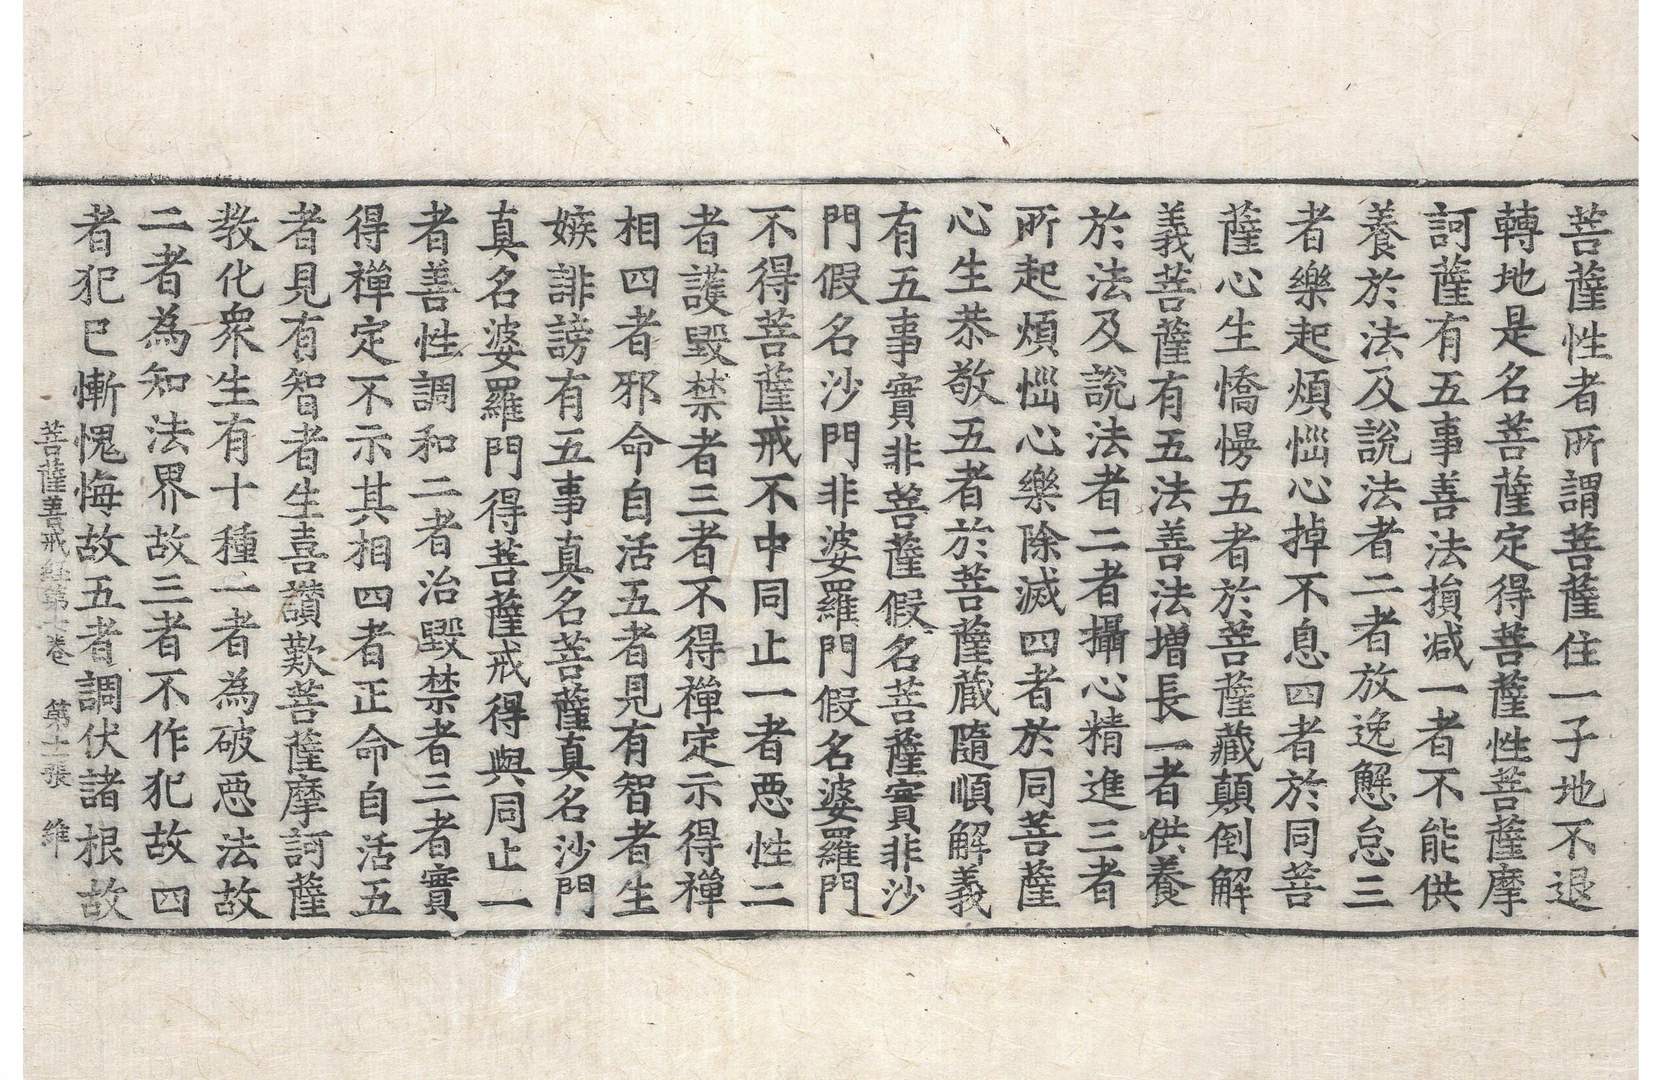 菩薩性者所謂菩薩住一子地不退
轉地是名菩薩定得菩薩性菩薩摩
訶薩有五事善法損减一者不能供
養於法及說法者二者放逸懈怠三
者樂起煩惱心掉不息四者於同菩
薩心生憍慢五者於菩薩藏顛倒解
義菩薩有五法善法增長一者供養
於法及說法者二者攝心精進三者
所起煩惱心樂除滅四者於同菩薩
心生恭敬五者於菩薩藏隨順解義
有五事實非菩薩假名菩薩實非沙
門假名沙門非婆羅門假名婆羅門
不得菩薩戒不中同止一者惡性二
者護毀禁者三者不得禪定示得禪
相四者邪命自活五者見有智者生
嫉誹謗有五事真名菩薩真名沙門
真名婆羅門得菩薩戒得與同止一
者善性調和二者治毀禁者三者實
得禪定不示其相四者正命自活五
者見有智者生喜讚歎菩薩摩訶薩
教化衆生有十種一者為破惡法故
二者為知法界故三者不作犯故四
者犯已慚愧悔故五者調伏諸根故
菩薩善戒經第七卷 第十二張 維